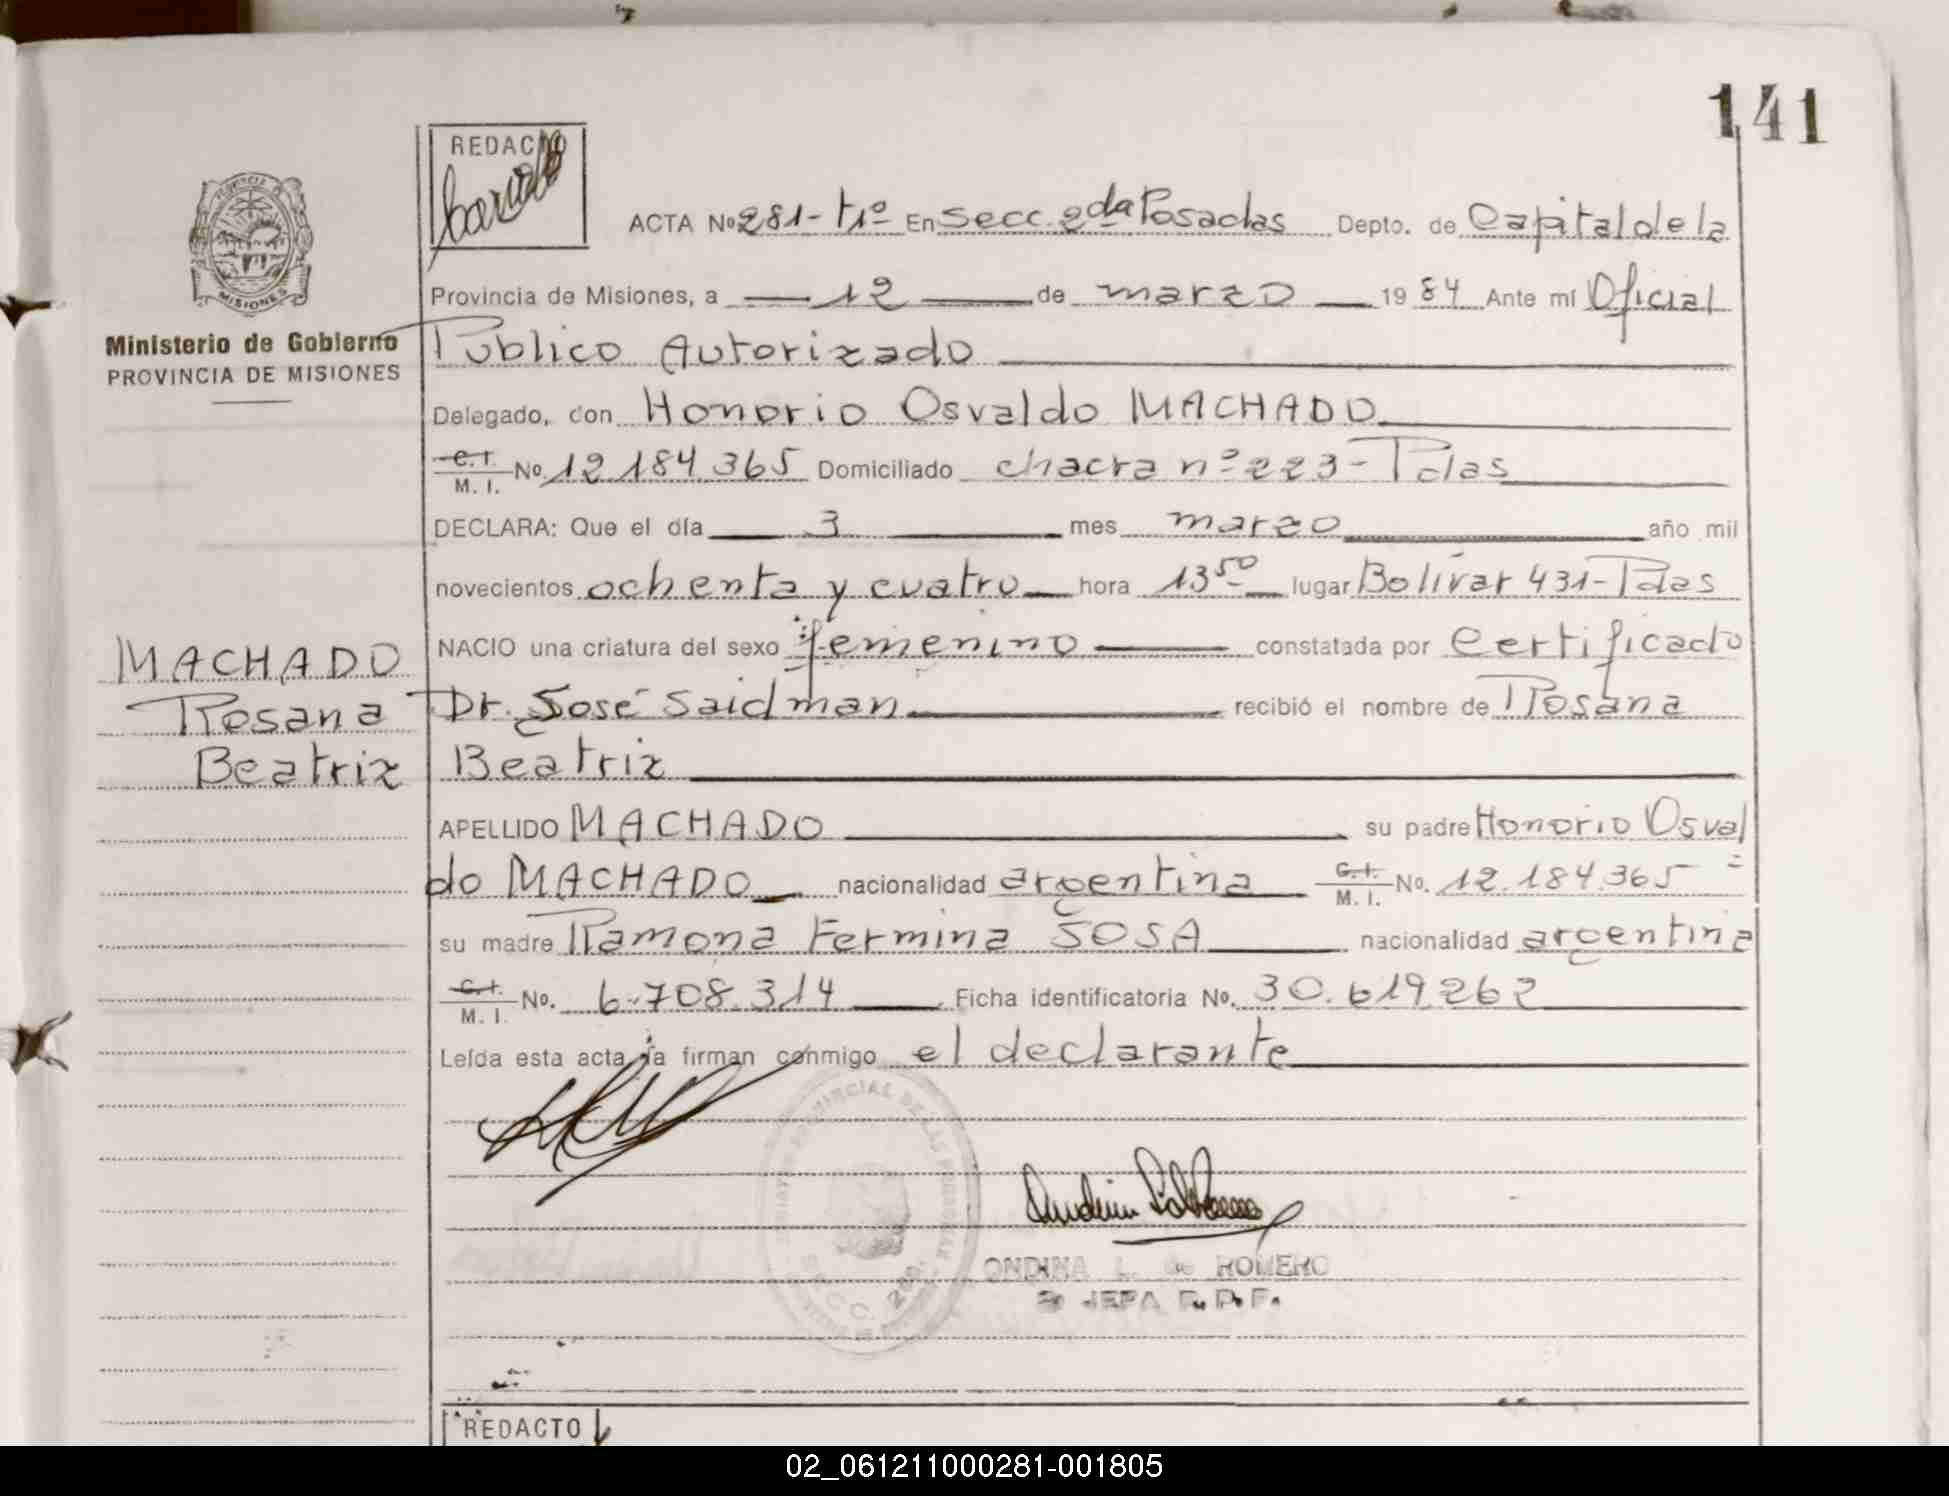 141
REDACTO
ACTA Nº 281- t1º En Secc. 2da Posadas Depto. de Capital de la
PROVINCIA DE MISIONES
Provincia de Misiones, a 12 de marzo 1984 Ante mí Oficial
Ministerio de Gobierno
PROVINCIA DE MISIONES
Público Autorizado
Delegado, con Honorio Osvaldo MACHADO
C.I. M. I. No. 12.184.365 Domiciliado chacra nº 223 - Pdas
DECLARA: Que el día 3 mes marzo año mil
novecientos ochenta y cuatro hora 13 50 lugar Bolívar 431 - Pdas
NACIO una criatura del sexo femenino constatada por Certificado
MACHADO
Rosana
Beatriz
Dr. José Saidman recibió el nombre de Rosana
Beatriz
APELLIDO MACHADO su padre Honorio Osval
do MACHADO nacionalidad argentina C.I. M. I. No. 12.184.365
su madre Ramona Fermina SOSA nacionalidad argentina
C.I. M. I. No. 6.708.314 Ficha identificatoria No. 30.619.262
Leída esta acta la firman conmigo el declarante
PROVINCIAL DE LAS PERSONAS
SECC. 2da.
ONDINA L. de ROMERO
JEFA
REDACTO
02_061211000281-001805